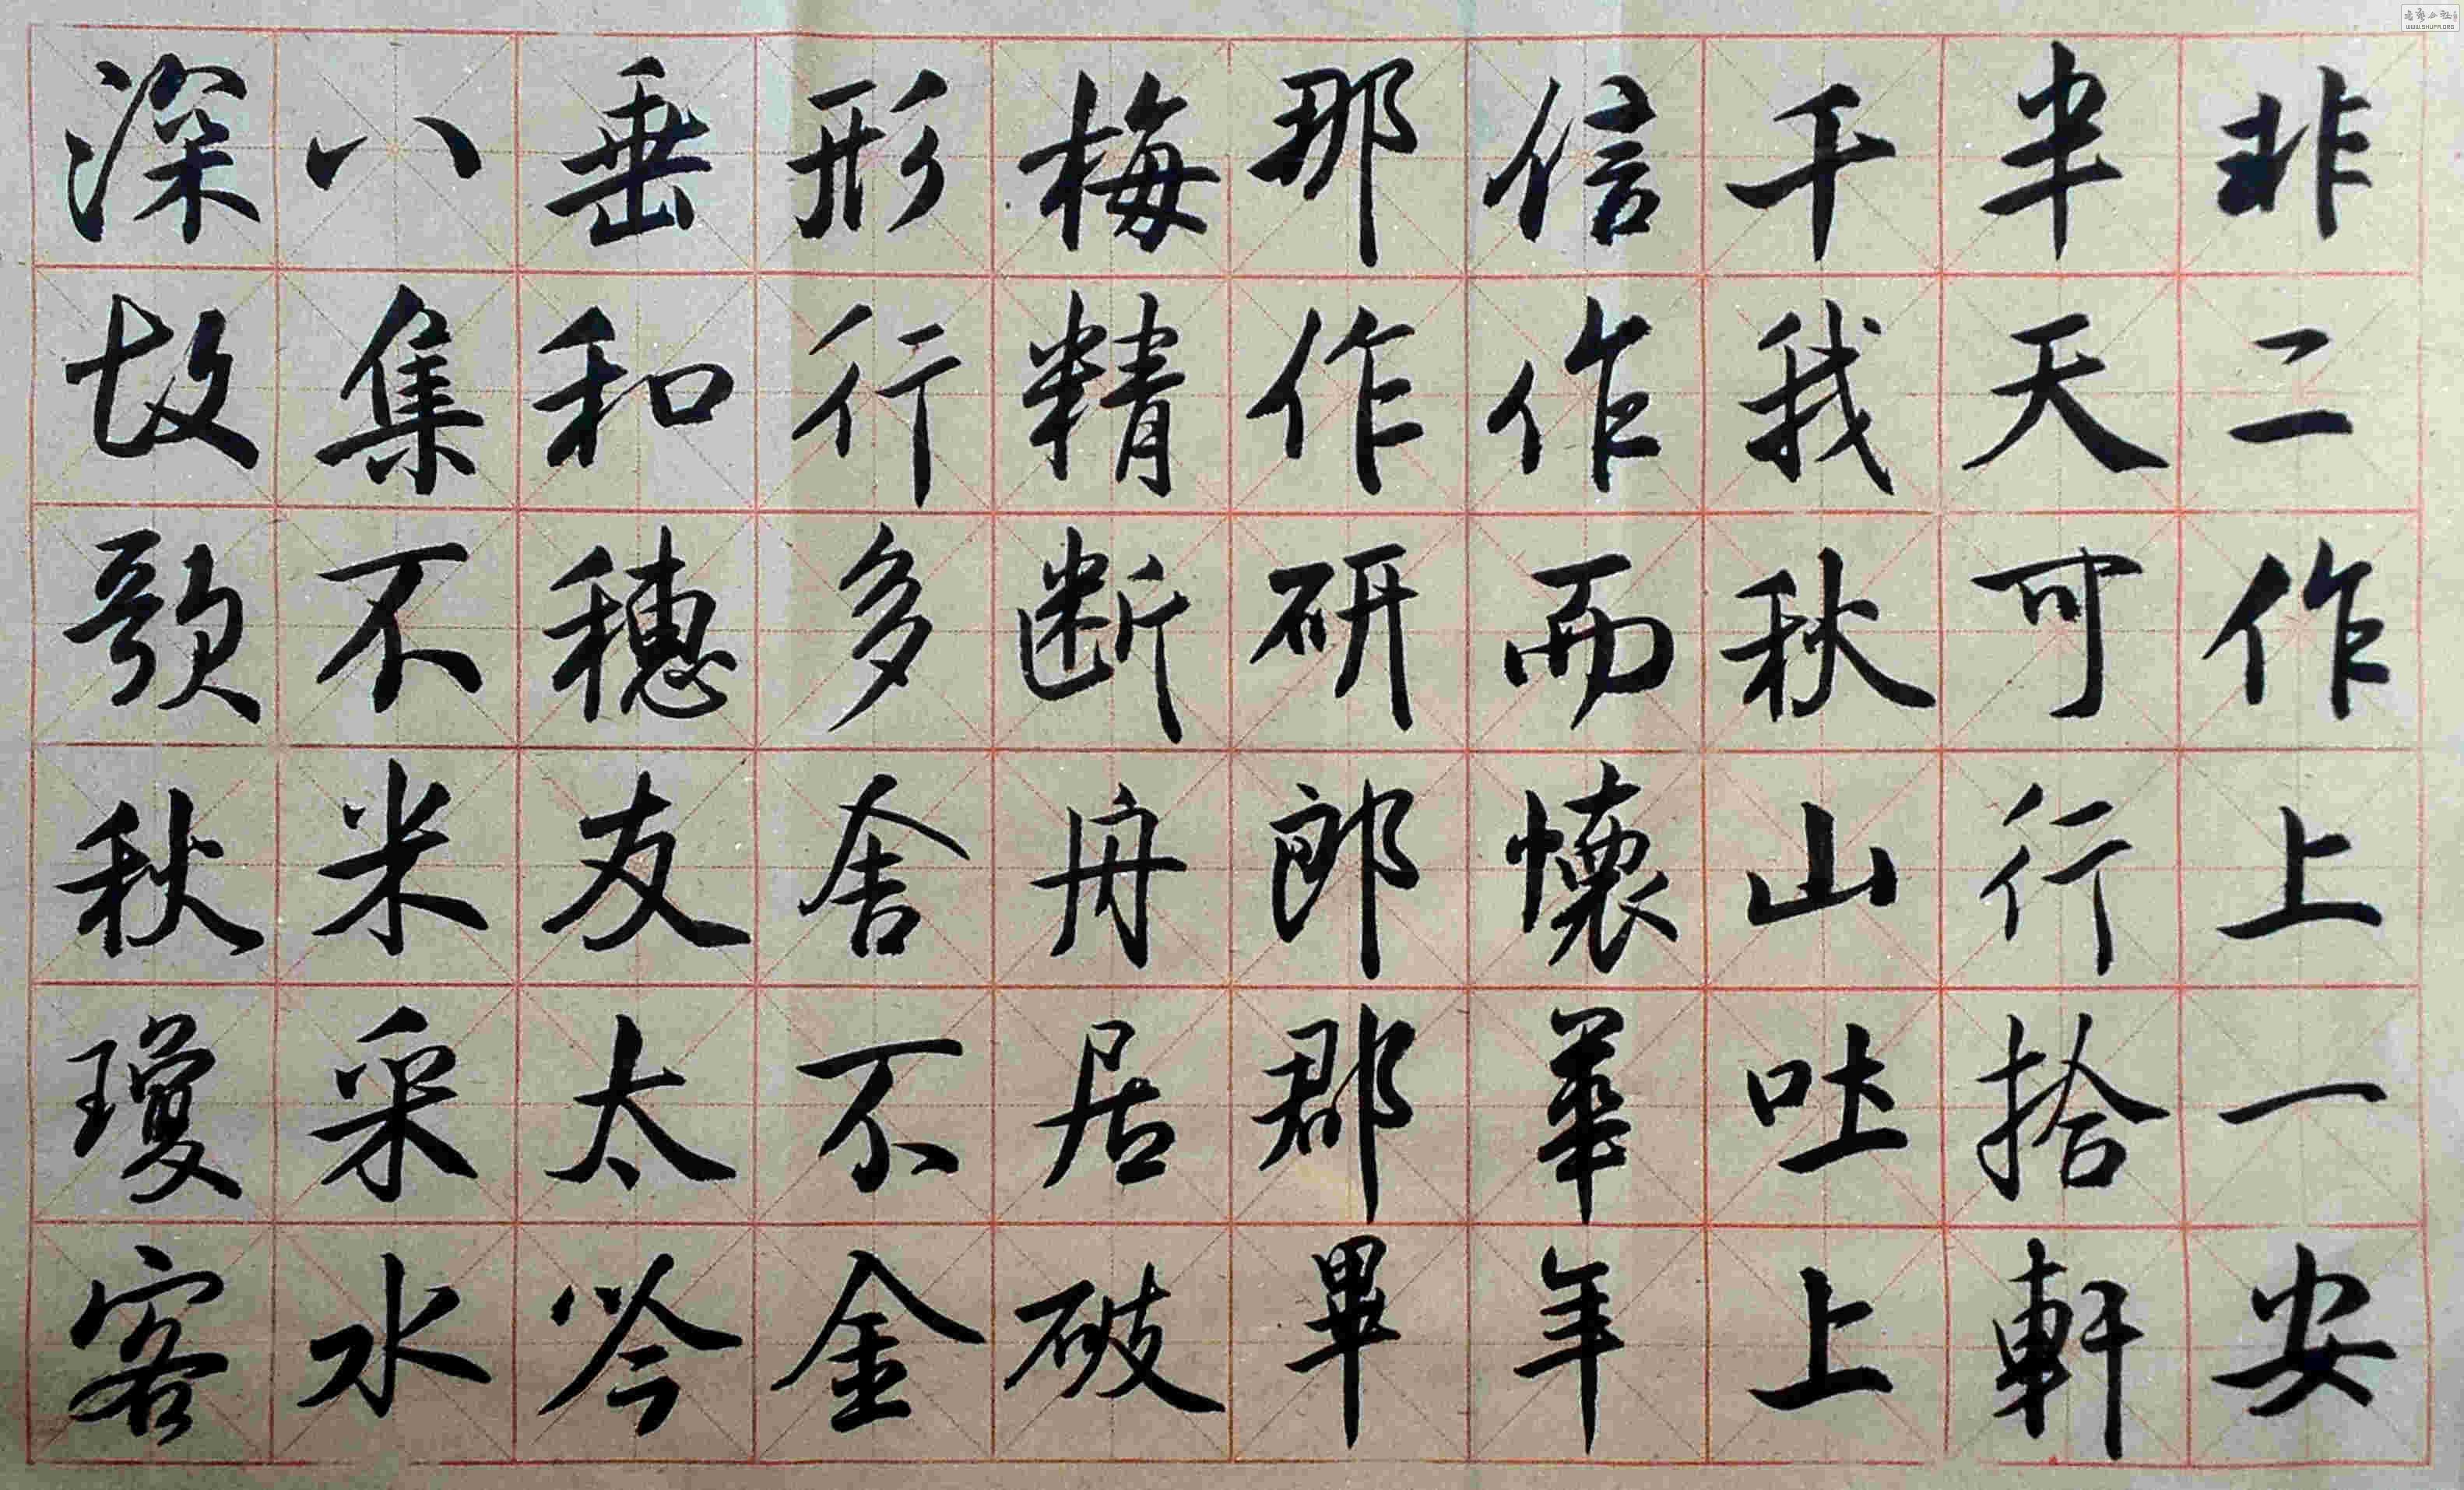 非二作上一安
半天可行拾軒
千我秋山吐上
信作而懷華年
那作研郎郡畢
梅精断舟居破
形行多舍不金
垂和穗友太
八集不米采水
深故歌秋瓊客
WWW.SHUFA.ORG